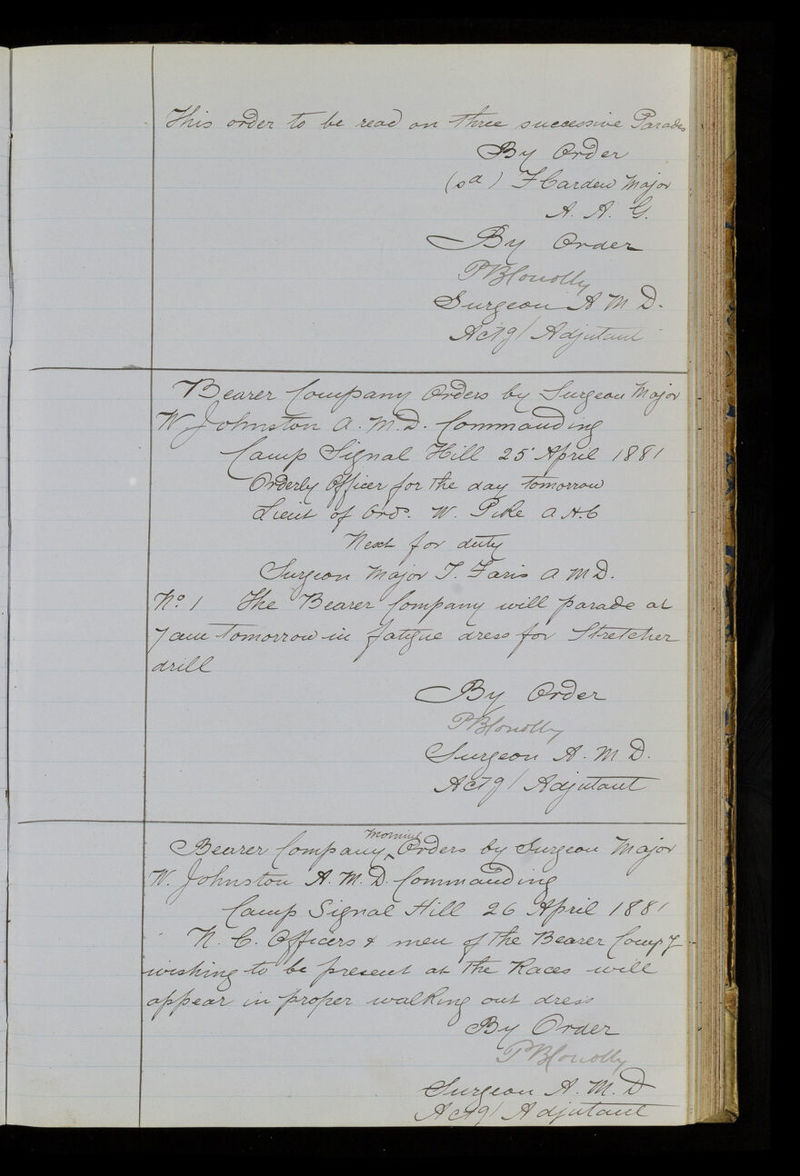 This order to be read on three successive Parades
By Order
(sd) F Cardew Major
A. A. G.
By Order
PBConolly
Surgeon A M D.
Actg/ Adjutant
Bearer Company Orders by Surgeon Major
W Johnston A. M. D. Commanding
Camp Signal Hill 25 April 1881
Orderly Officer for the day tomorrow
Lieut of Ord. W. Pike A H C
Next for duty
Surgeon Major T. Faris A M D.
No. 1 The Bearer Company will parade at
7 am tomorrow in fatigue dress for Stretcher
drill
By Order
PBConolly
Surgeon A. M. D.
Actg/ Adjutant
Bearer Company Morning Orders by Surgeon Major
W. Johnston A. M. D. Commanding
Camp Signal Hill 26 April 1881
N. C. Officers & men of the Bearer Compy
wishing to be present at the Races will
appear in proper walking out dress
By Order
PBConolly
Surgeon A. M. D
Actg/ Adjutant